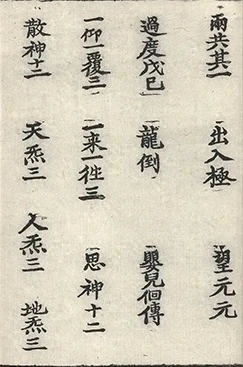 兩共其一 出入極 望元元
過度戊巳 龍倒 見佪傳
一仰一覆三 一来一徃三 思神十二
散神十二 天炁三 人炁三 地炁三